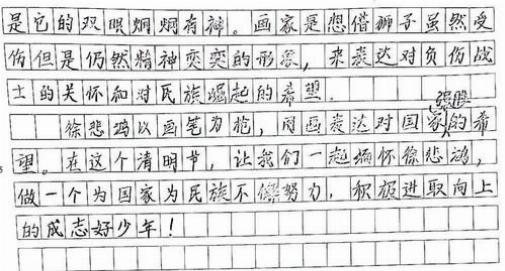 是它的双眼炯炯有神。画家是想借狮子虽然受
伤但是仍然精神奕奕的形象，来表达对负伤战
士的关怀和对民族崛起的希望.
强胜
徐悲鸿以画笔为枪，用画表达对国家的希
望。在这个清明节，让我们一起缅怀徐悲鸿，
做一个为国家为民族不懈努力，积极进取向上
的成志好少年！